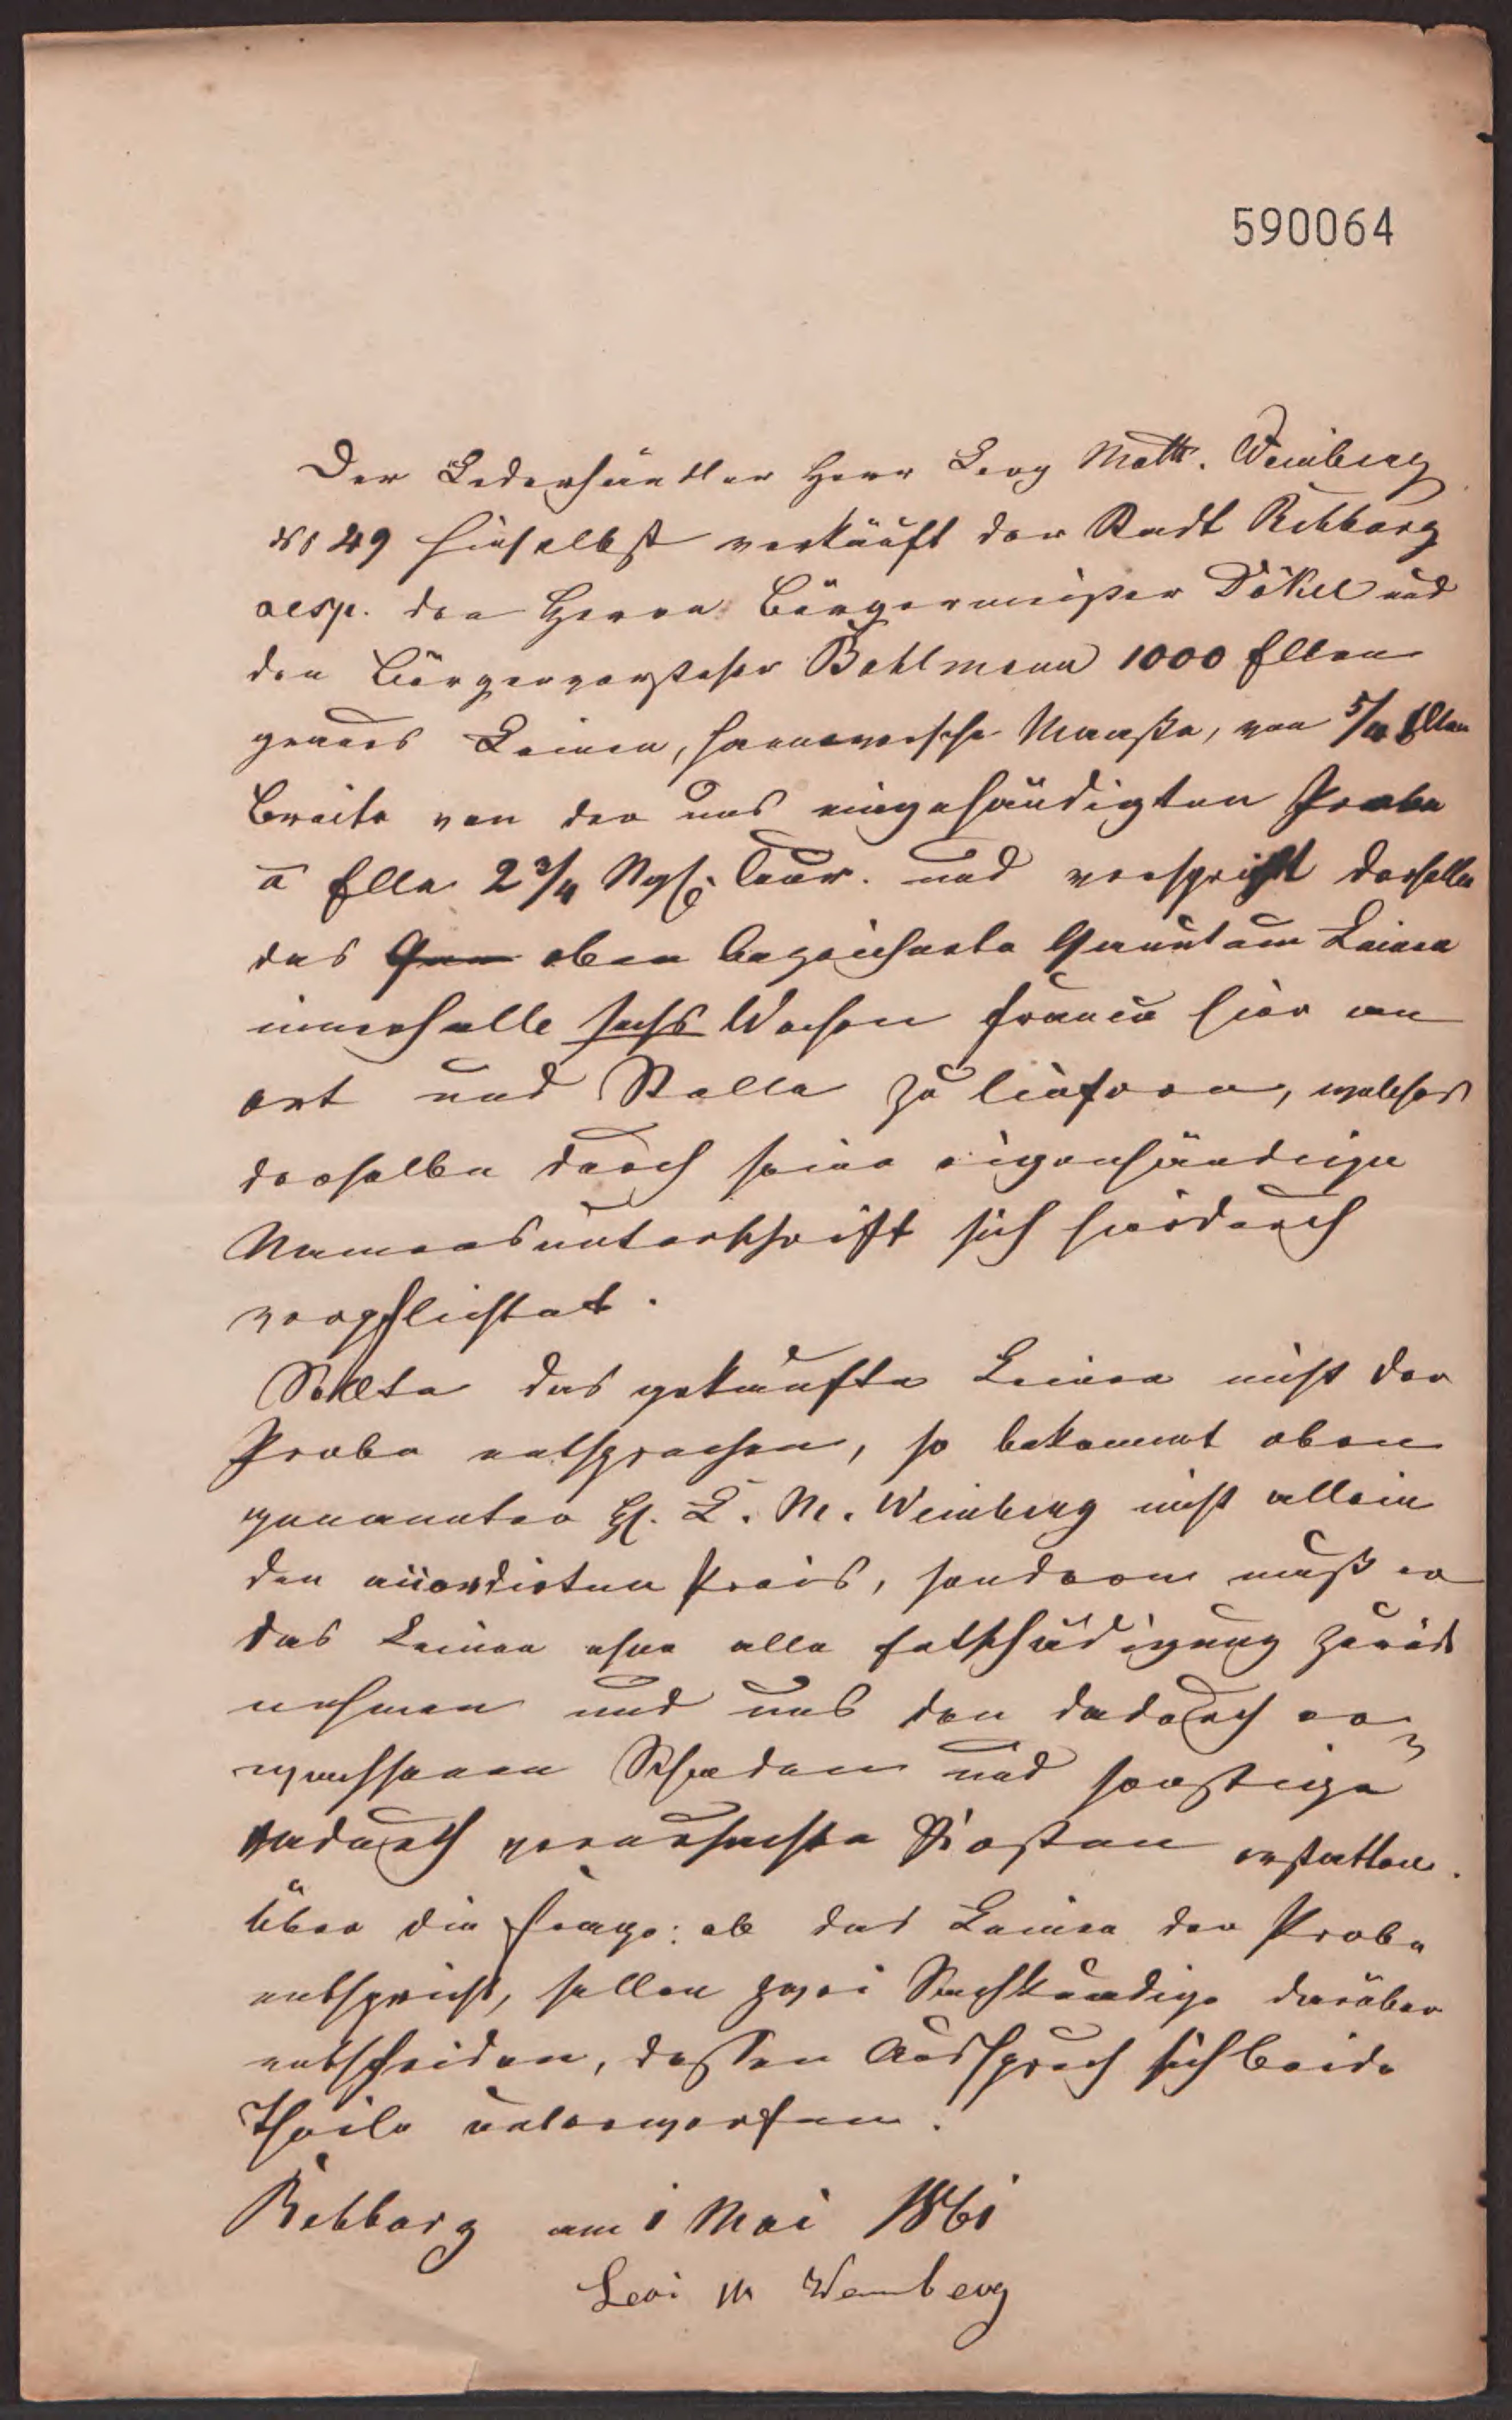 590064
Der Lederhändler Herr Levy Matth. Weinberg
No 49 hieselbst verkäuft der Stadt Rehburg
resp. den Herrn Bürgermeister Dökel und
den Bürgervorsteher Bohlmann 1000 Ellen
graues Leinen, hannoversche Maaße, von 5/4 Ellen
Breite von der uns eingehändigten Probe
a Elle 2 3/4 Ngf. Cour. und verspricht derselbe
das oben bezeichnete Quantum Leinen
innerhalb sechs Wochen franco hier an
Ort und Stelle zu liefern, welches
derselbe durch seine eigenhändige
Namensunterschrift sich hierdurch
verpflichtet.
Sollte das gekaufte Leinen nicht der
Probe entsprechen, so bekommt oben
genannter H. L. M. Weinberg nicht allein
den accordirten Preis, sondern muß er
das Leinen ohne alle Entschädigung zurück
nehmen und uns den dadurch er-
wachsenen Schaden und sonstige
dadurch verursachte Kosten erstatten.
Über die Frage: ob das Leinen der Probe
entspricht, sollen zwei Sachkundige darüber
entscheiden, dessen Ausspruch sich beide
Theile unterwerfen.
Rehburg am 1 Mai 1861
Levi M Weinberg